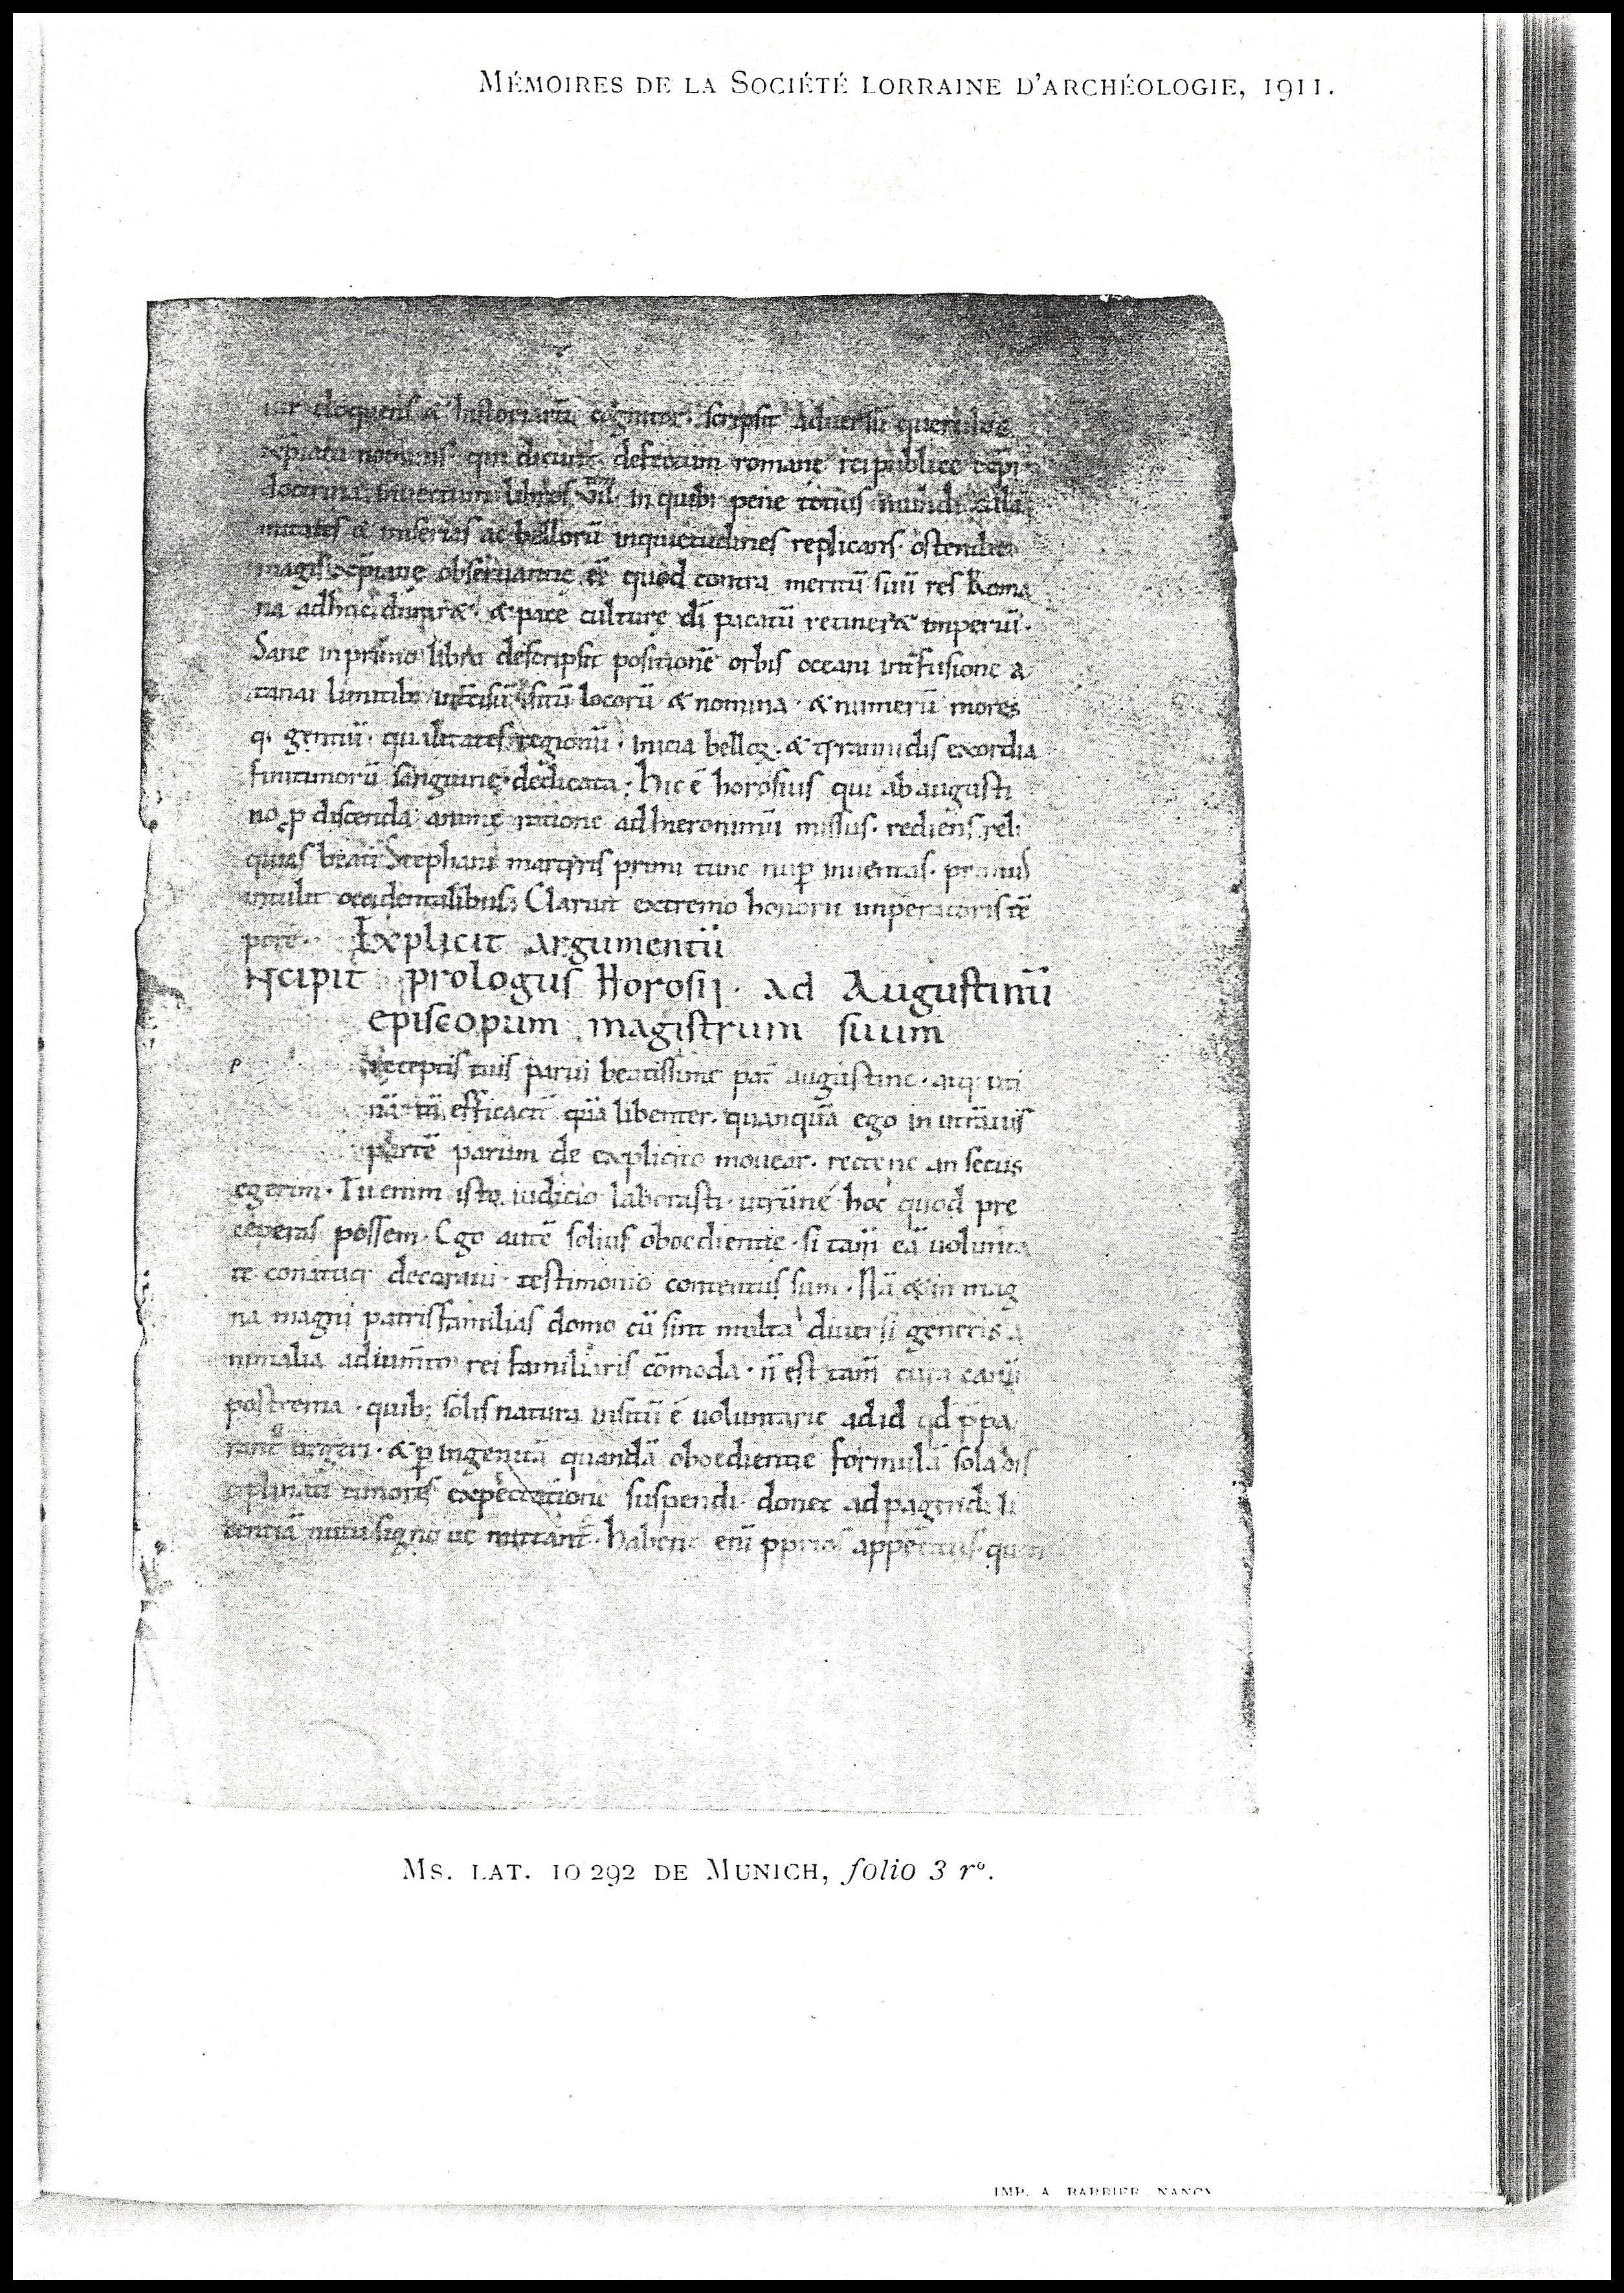 MÉMOIRES DE LA SOCIÉTÉ LORRAINE D'ARCHÉOLOGIE, 1911.
eloquens & historiarū cognitor scripsit aduersū querulos
qui dicunt defectum romane reipublice
doctrina inuectum libros VII in quibꝰ pene totius mundi cala
mitates & miserias ac bellorū inquietudines replicans · ostendit
magis xp̄iane obseruantie eē quod contra meritū suū res Roma
na adhuc duraret & pace culturę dī pacatū retineret imperiū ·
Sane in primo libro descripsit positionē orbis oceani intfusione &
tanai limitibꝰ intcisū situ locorū & nomina · & numerū mores
q· gentiū · qualitates regionū · inicia belloꝝ · & tyrannidis exordia
finitimorū sanguine dedicata ; hic ē horosius qui ab augusti
no p̱ discenda anime ratione ad hieronimū missus · rediens reli
quias beati Stephani martyris primi tunc nup̱ inuentas · primus
intulit occidentalibus ; Claruit extremo honorii imperatoris tē
pore · Explicit argumentū
Incipit prologus Horosii · ad Augustinū
episcopum magistrum suum
p receptis tuis parui beatissime pat̄ augustine · atq; uti
nā tā efficacit̄ quā libenter · quanquā ego in utrāuis
partē parum de explicito mouear · rectene an secus
egerim · Tu enim isto iudicio laborasti · utrūne hoc quod pre
ceperas possem · Ego autē solius oboedientie · si tam̄ eā uolunta
te conatuq; decoraui · testimonio contentus sum · Nā & in mag
na magni patrisfamilias domo cū sint multa diuersi generis a
nimalia adiumto rei familiaris cōmoda · n̄ est tam̄ cura canū
postrema · quib; solis natura insitū ē uoluntarie ad id qd p̄pa
rant urgeri · & p̱ ingenitā quandā oboedientie formulā sola dis
ciplinati timoris expectatione suspendi · donec ad pagenda li
centiā nutu signo ue mittant · habent enī pprios appetitus · quan
MS. LAT. 10 292 DE MUNICH, folio 3 rº.
IMP. A. BARBIER, NANCY